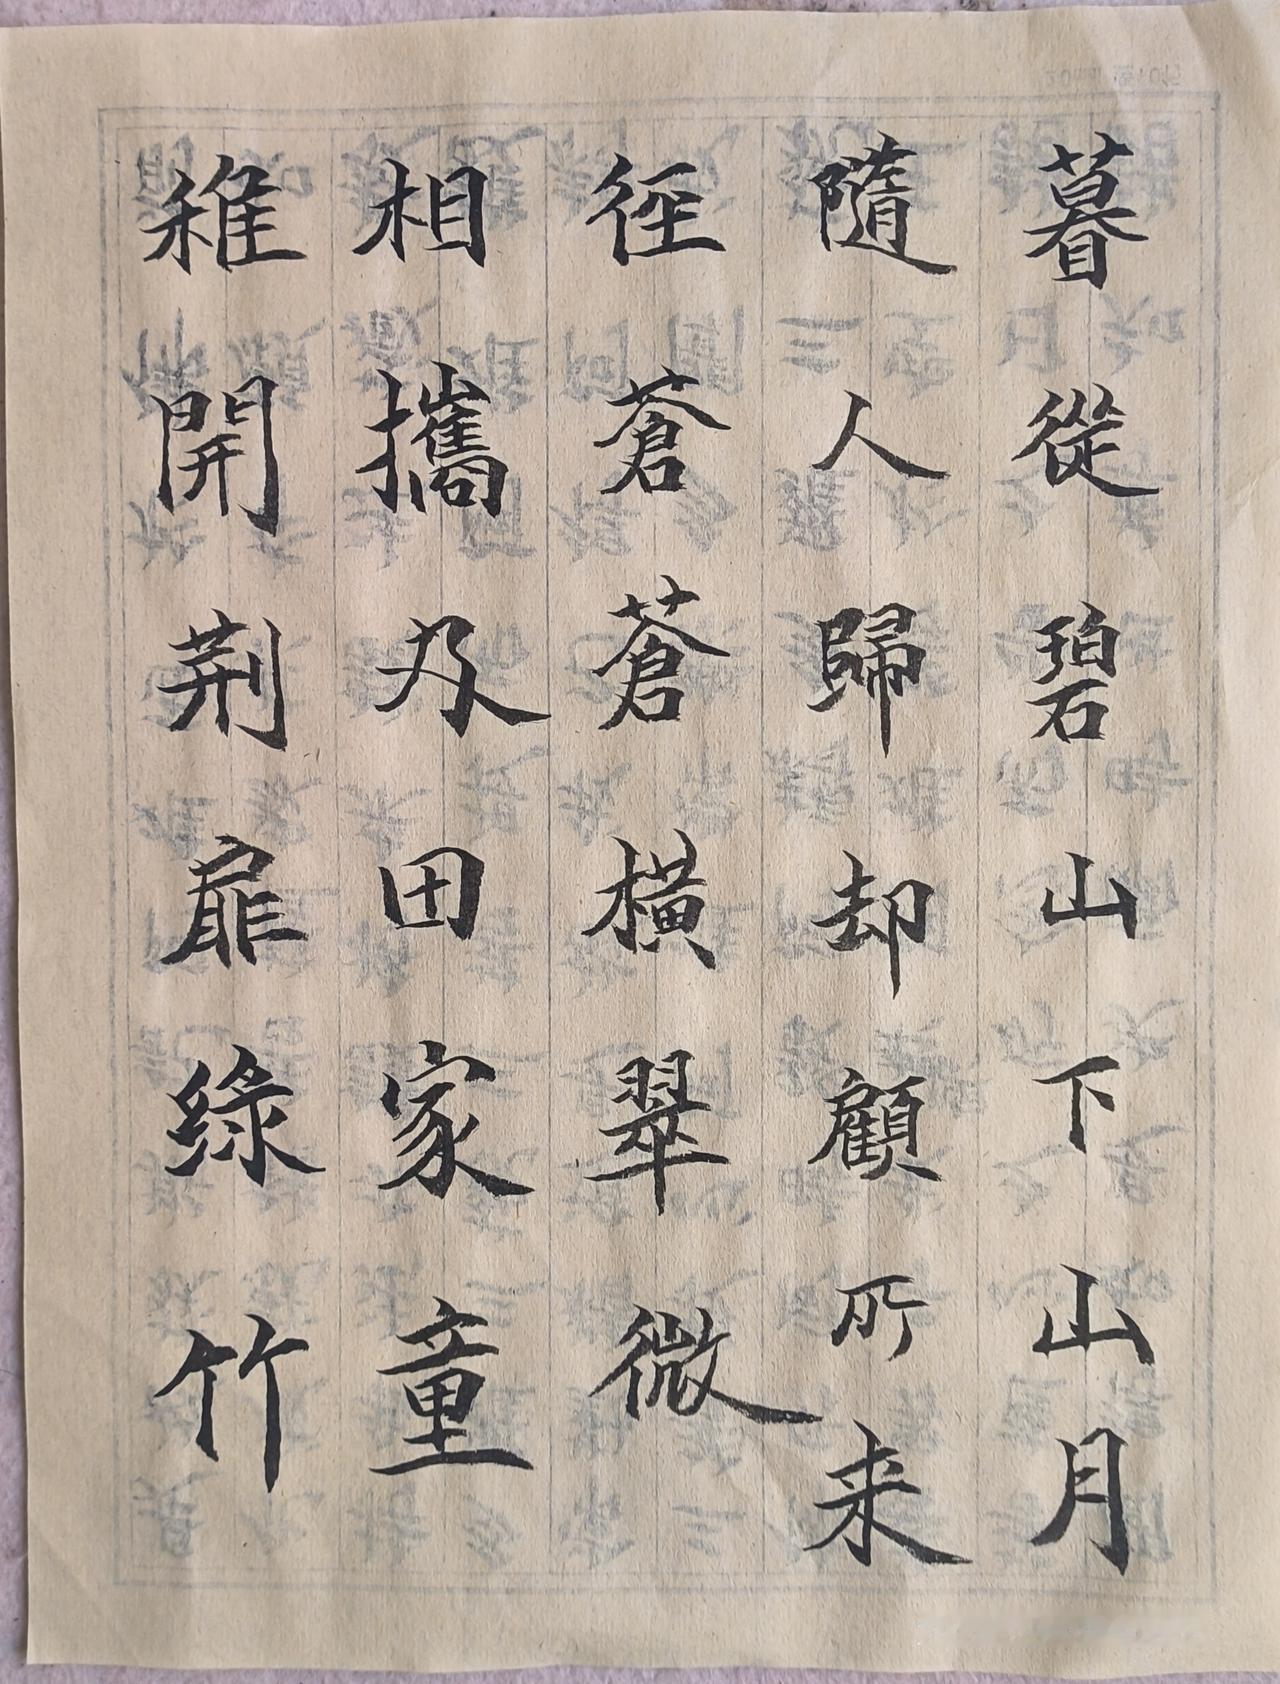 暮從碧山下山月
隨人歸却顧所来
徑蒼蒼橫翠微
相攜及田家童
稚開荆扉綠竹